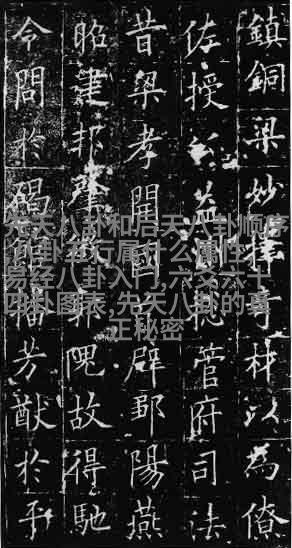 鎮銅梁妙擇奇材以為僚
佐授公益州總管府司法
昔梁孝開國首辟鄒陽燕
昭建邦肇徵郭隗故得馳
令問於碣館播芳猷於平
先天八卦和后天八卦顺序
,八卦五行属什么属性,
易经八卦入门,六爻六十
四卦图表,先天八卦的真
正秘密